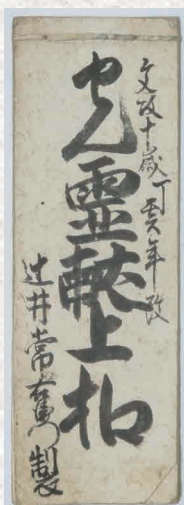 文政十歳丁亥年改
靈献上扣
辻井常右衛門製